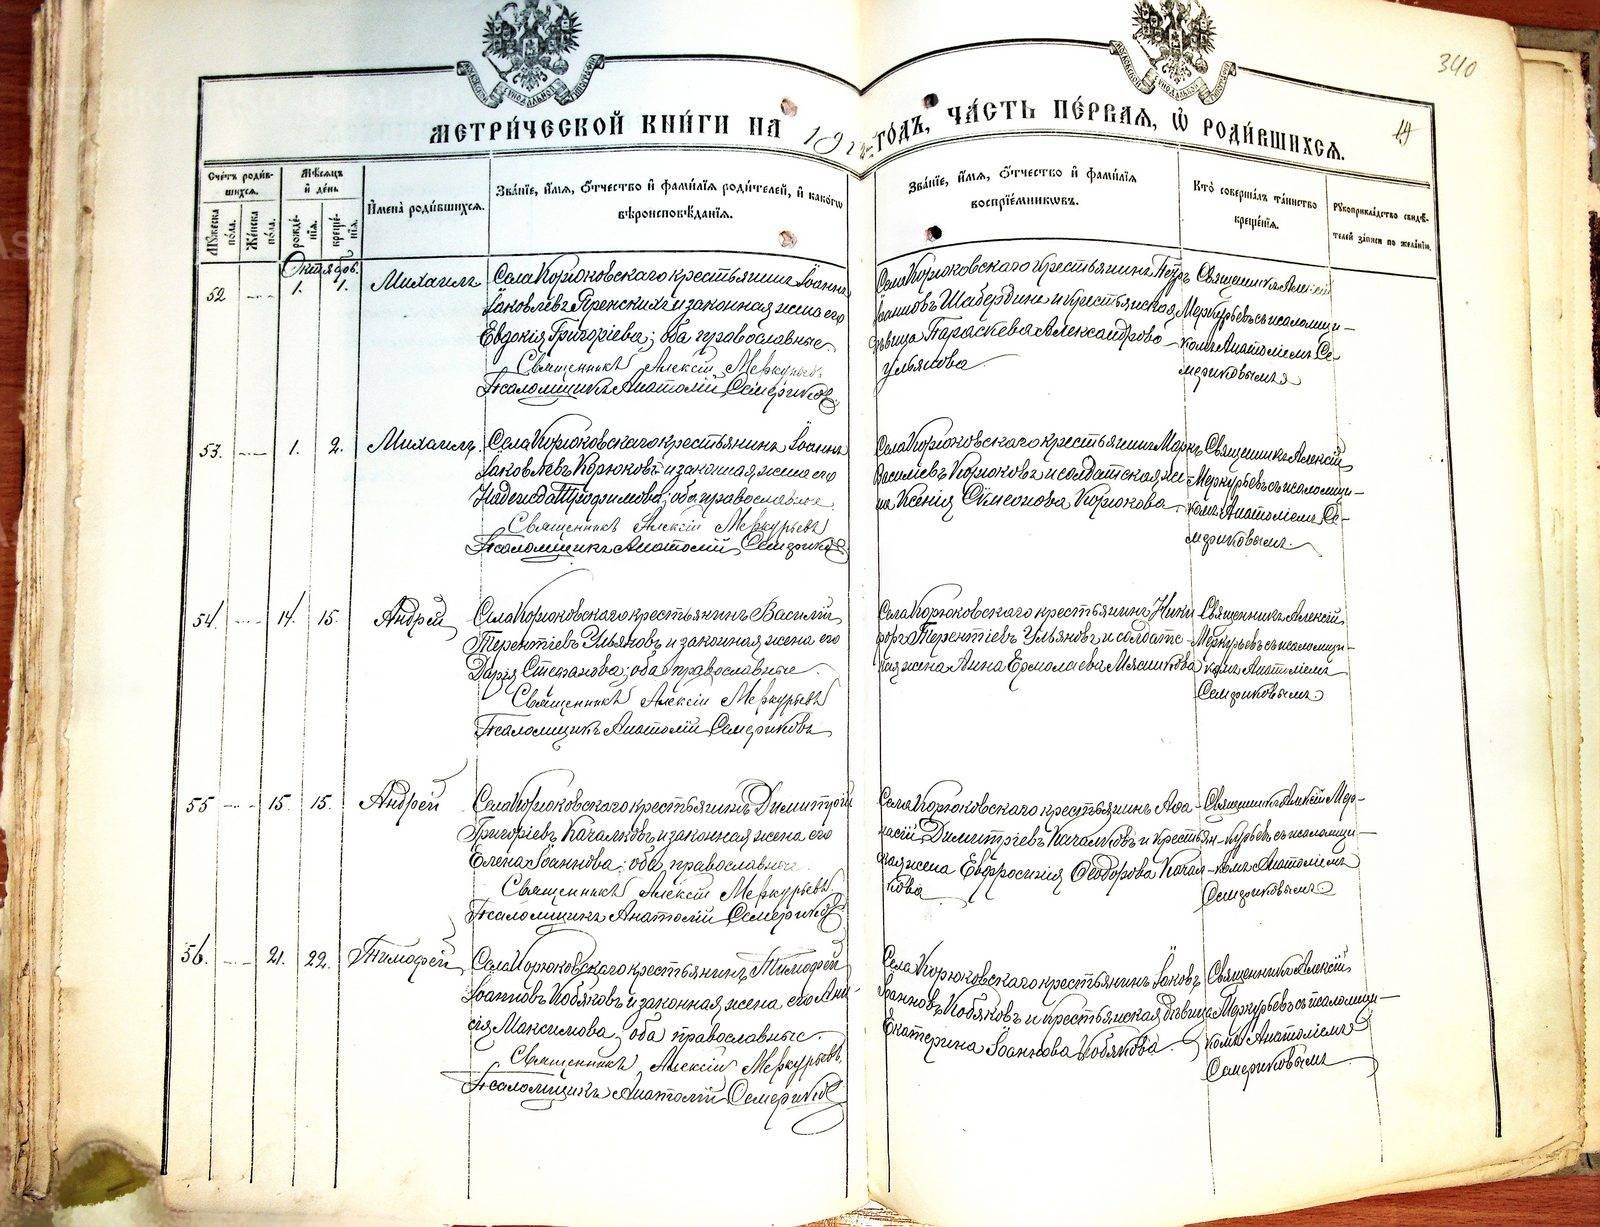 340
МЕТРИ́ЧЕСКОЙ КНИ́ГИ НА 191 ГОДЪ, ЧА́СТЬ ПЕ́РВАЯ, Ѡ РОДИ́ВШИХСЯ.
19
Сче́тъ роди́в-
шихся.
Мѣ́сяцъ
и де́нь
Му́жеска
по́ла.
Же́нска
по́ла.
рожде́-
нія.
креще́-
нія.
И҆мена̀ роди́вшихся.
Зва́ніе, и҆́мя, ѻ҆́тчество и҆ фами́лія роди́телей, и҆ како́гѡ
вѣроисповѣ́данія.
Зва́ніе, и҆́мя, ѻ҆́тчество и҆ фами́лія
воспріе́мникѡвъ.
Кто̀ соверша́лъ та́инство
креще́нія.
Рꙋкоприкла́дство свидѣ́-
телей за́писи по жела́нію.
Октябрь.
52 1. 1. Михаилъ
Села Корюковскаго крестьянинъ Іоаннъ
Іаковлевъ и законная жена его
Евдокія Григоріева; оба православные.
Священникъ Алексій Меркурьевъ
Псаломщикъ Анатолій Семериковъ
Села Корюковскаго крестьянинъ Петръ
Іоанновъ Шабердинъ и крестьянская
дѣвица Параскева Александрова
Ульянова
Священникъ Алексій
Меркурьевъ съ псаломщи-
комъ Анатоліемъ Се-
мериковымъ
53. 1. 2. Михаилъ
Села Корюковскаго крестьянинъ Іоаннъ
Іаковлевъ Корюковъ и законная жена его
Надежда Трофимова; оба православные
Священникъ Алексій Меркурьевъ
Псаломщикъ Анатолій Семериковъ
Села Корюковскаго крестьянинъ Маркъ
Васильевъ Корюковъ и солдатская же-
на Ксенія Сѵмеонова Корюкова
Священникъ Алексій
Меркурьевъ съ псаломщи-
комъ Анатоліемъ Се-
мериковымъ.
54. 14. 15. Андрей
Села Корюковскаго крестьянинъ Василій
Терентіевъ Ульяновъ и законная жена его
Дарія Стефанова; оба православные.
Священникъ Алексій Меркурьевъ
Псаломщикъ Анатолій Семериковъ
Села Корюковскаго крестьянинъ Ники-
форъ Терентіевъ Ульяновъ и солдатс-
кая жена Анна Ермолаева Мясникова
Священникъ Алексій
Меркурьевъ съ псаломщи-
комъ Анатоліемъ
Семериковымъ
55 15. 15. Андрей
Села Корюковскаго крестьянинъ Димитрій
Григоріевъ Качалковъ и законная жена его
Елена Іоаннова; оба православные.
Священникъ Алексій Меркурьевъ
Псаломщикъ Анатолій Семериковъ
Села Корюковскаго крестьянинъ Аѳа-
насій Димитріевъ Качалковъ и крестьян-
ская жена Евфросинія Ѳеодорова Качал-
кова
Священникъ Алексій Мер-
курьевъ съ псаломщи-
комъ Анатоліемъ
Семериковымъ
56. 21. 22. Тимофей
Села Корюковскаго крестьянинъ Тимофей
Іоанновъ Кобяковъ и законная жена его Ани-
сія Максимова; оба православные.
Священникъ Алексій Меркурьевъ
Псаломщикъ Анатолій Семериковъ
Села Корюковскаго крестьянинъ Іаковъ
Іоанновъ Кобяковъ и крестьянская дѣвица
Екатерина Іоаннова Кобякова.
Священникъ Алексій
Меркурьевъ съ псаломщи-
комъ Анатоліемъ
Семериковымъ